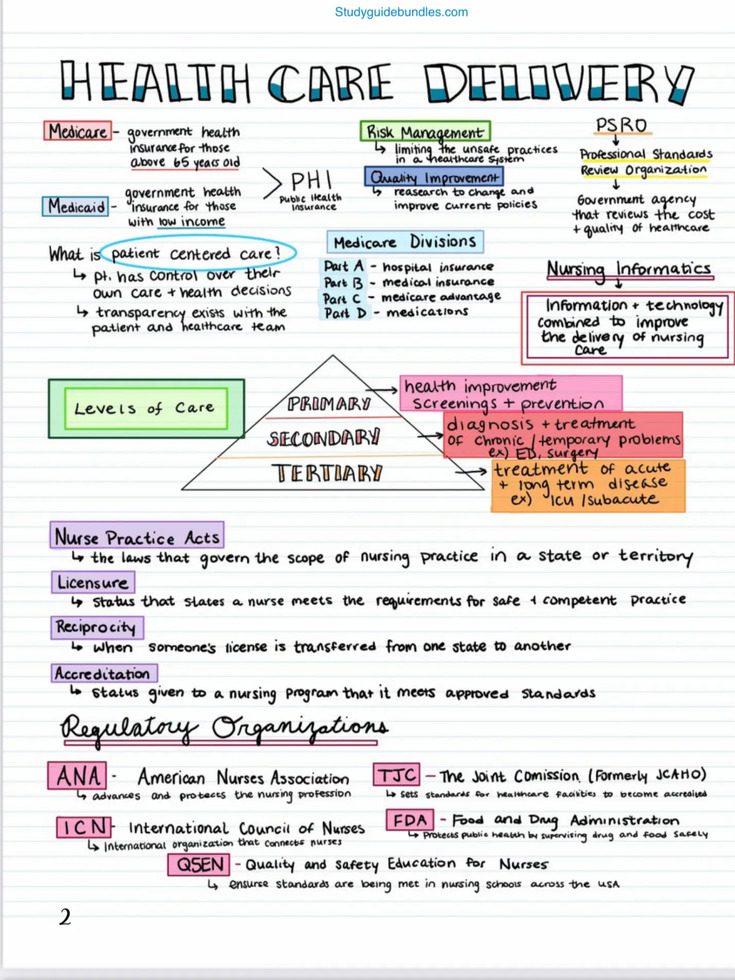 Studyguidebundles.com
HEALTH CARE DELIVERY
Medicare - government health
insurance for those
above 65 years old
Medicaid - government health
insurance for those
with low income
> PHI
Public Health
Insurance
Risk Management
↳ limiting the unsafe practices
in a healthcare system
Quality Improvement
↳ reasearch to change and
improve current policies
PSRO
↓
Professional Standards
Review Organization
↓
Government agency
that reviews the cost
+ quality of healthcare
What is patient centered care?
↳ pt. has control over their
own care + health decisions
↳ transparency exists with the
patient and healthcare team
Medicare Divisions
Part A - hospital insurance
Part B - medical insurance
Part C - medicare advantage
Part D - medications
Nursing Informatics
Information + technology
combined to improve
the delivery of nursing
care
Levels of Care
PRIMARY → health improvement
screenings + prevention
SECONDARY → diagnosis + treatment
of chronic / temporary problems
ex) ED, surgery
TERTIARY → treatment of acute
+ long term disease
ex) ICU / subacute
Nurse Practice Acts
↳ the laws that govern the scope of nursing practice in a state or territory
Licensure
↳ status that states a nurse meets the requirements for safe + competent practice
Reciprocity
↳ when someone's license is transferred from one state to another
Accreditation
↳ status given to a nursing program that it meets approved standards
Regulatory Organizations
ANA - American Nurses Association
↳ advances and protects the nursing profession
TJC - The Joint Comission (Formerly JCAHO)
↳ sets standards for healthcare facilities to become accredited
ICN - International Council of Nurses
↳ International organization that connects nurses
FDA - Food and Drug Administration
↳ Protects public health by supervising drug and food safely
QSEN - Quality and Safety Education for Nurses
↳ ensurse standards are being met in nursing schools across the USA
2